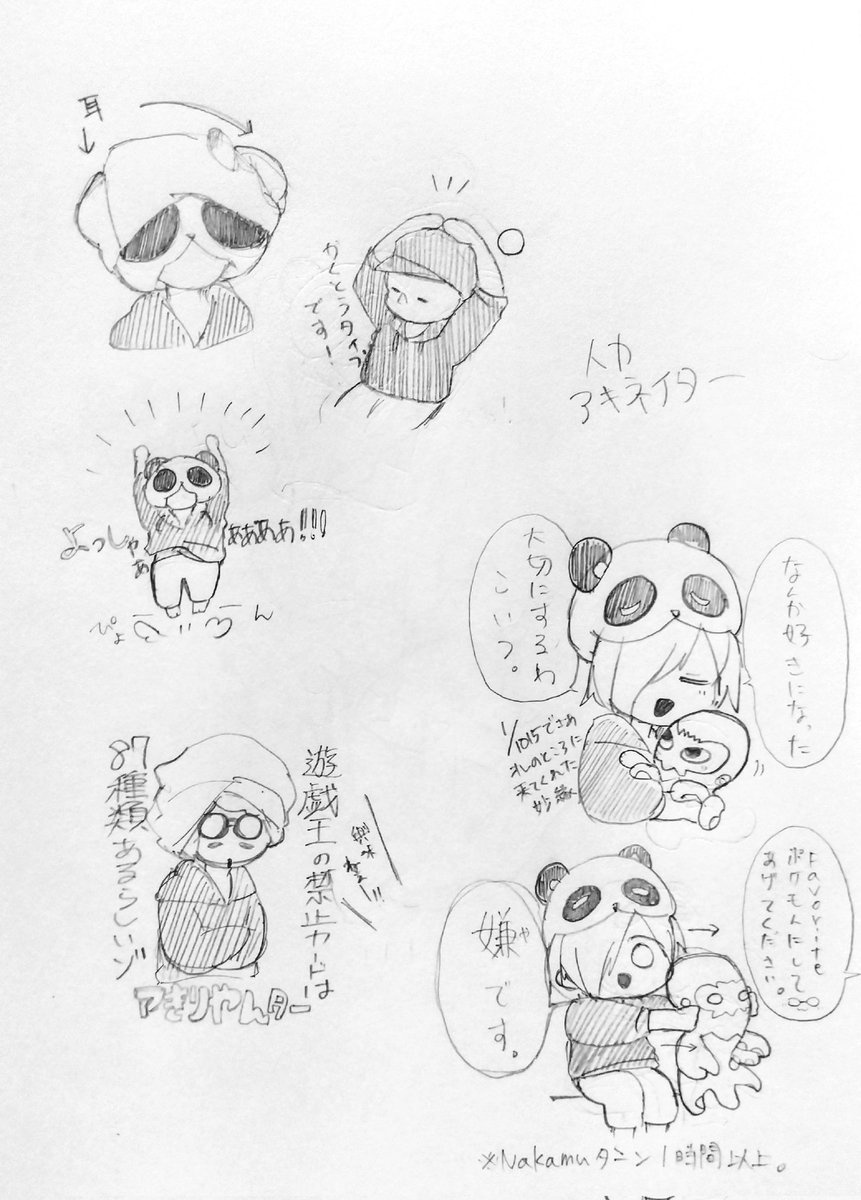 耳
かくとうタイプ
です!
人力
アキネイター
よっしゃぁ
ああああ!!!
ぴょ
ん
なんか好きになった
大切にするわ
こいつ。
1/1015でさあ
オレのところに
来てくれた
遊戯王の禁止カードは
87種類あるらしいゾ
興味ねぇー!!
アきりやんター
Favorite
ポケモンにして
あげてください。
嫌です。
や
※Nakamuタニン1時間以上。